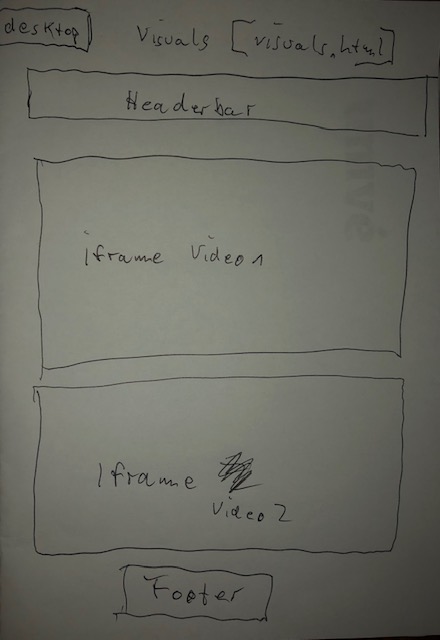 desktop
Visuals [visuals.html]
Headerbar
iframe Video 1
Iframe
Video 2
Footer